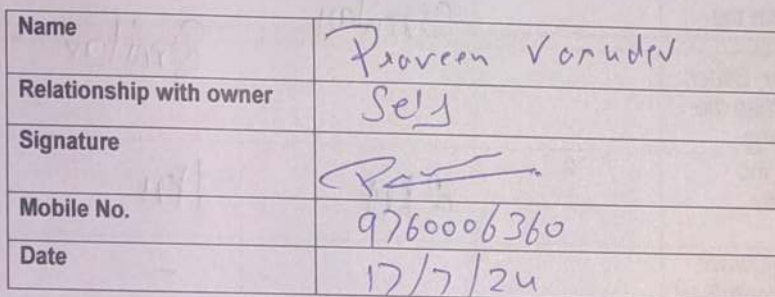 Name Praveen Vasudev
Relationship with owner Self
Signature
Mobile No. 9760006360
Date 17/7/24